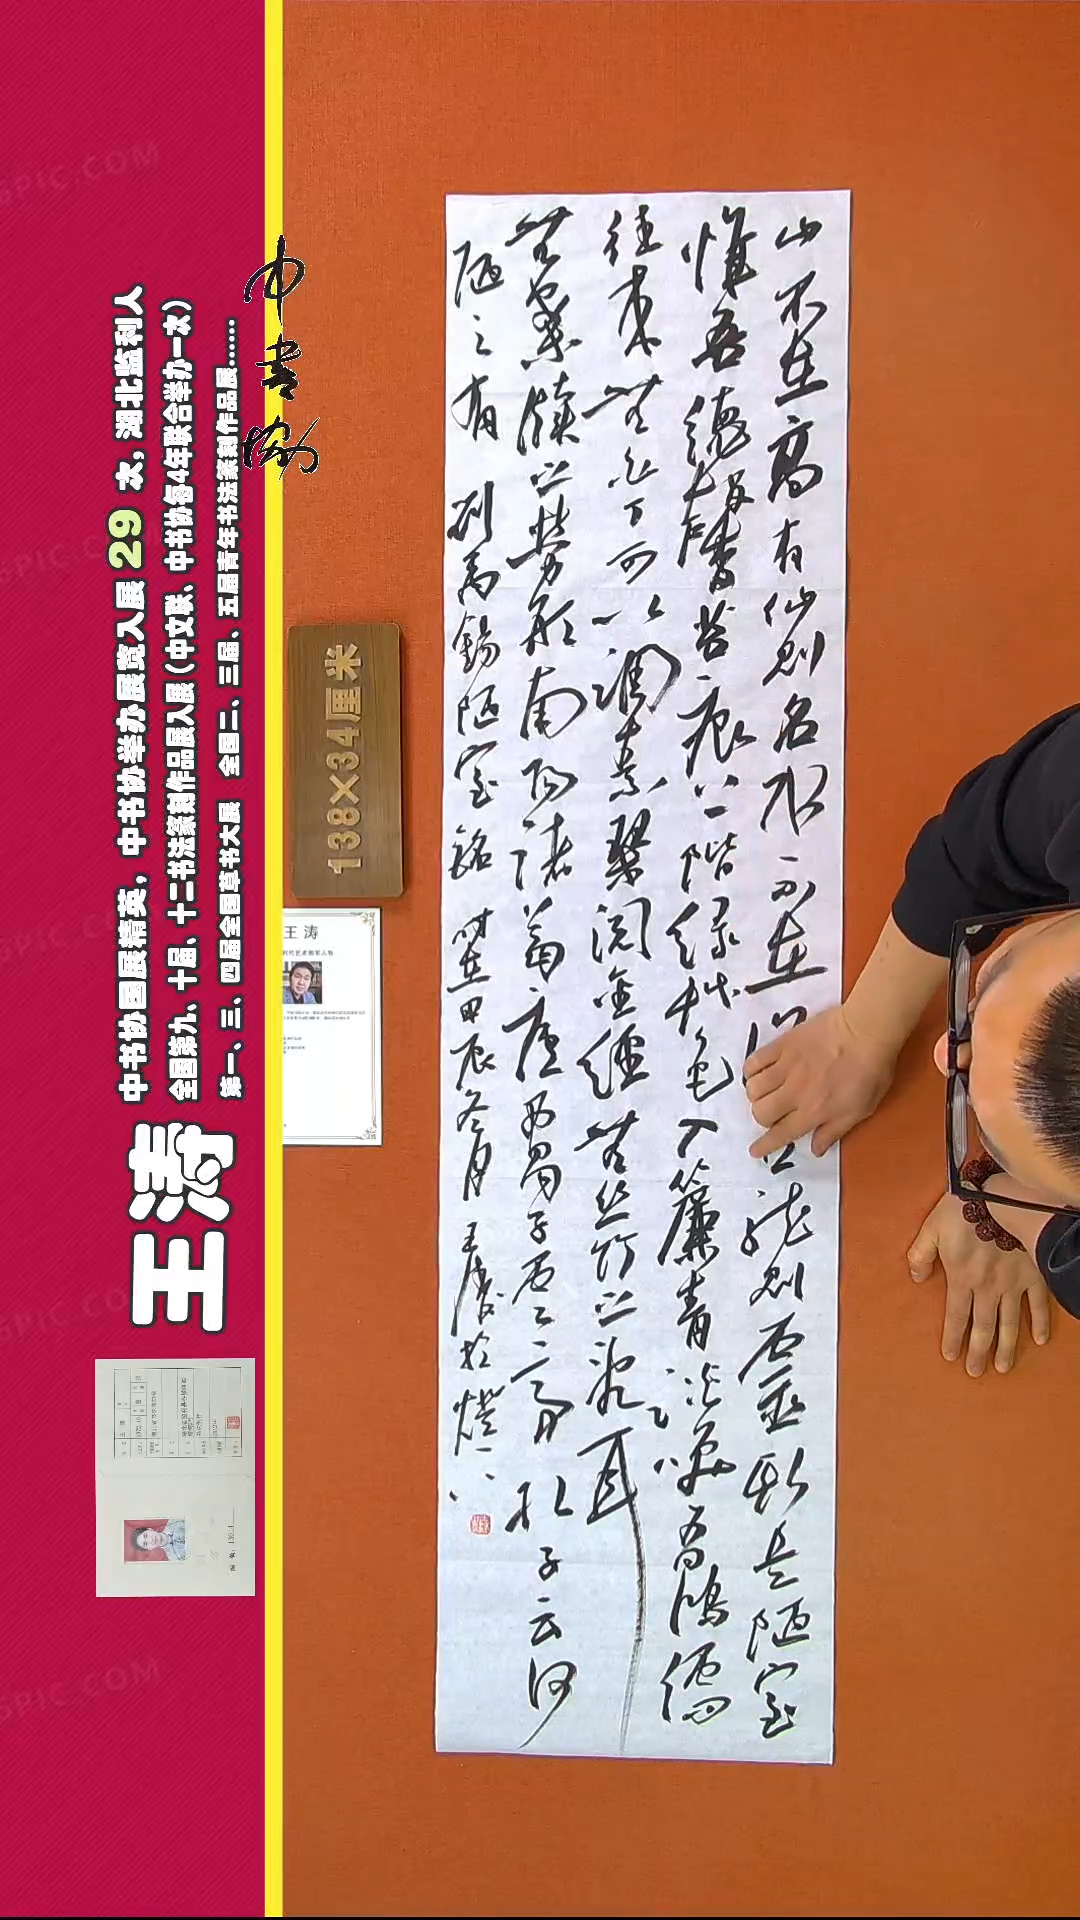 山不在高有仙则名水不在龙则灵斯是陋室
惟吾德馨苔痕上阶绿草色入簾青谈笑有鸿儒
往来无白丁可以调素琴阅金经无丝竹之乱耳
无案牍之劳形南阳诸葛庐西蜀子云亭孔子云何
陋之有 刘禹锡陋室铭 时在甲辰冬月 王涛
中书协
中书协国展精英，中书协举办展览入展 29 次，湖北监利人
全国第九、十届、十二书法篆刻作品展入展（中文联、中书协每4年联合举办一次）
第一、三、四届全国草书大展 全国二、三届、五届青年书法篆刻作品展......
王涛
138×34厘米
王 涛